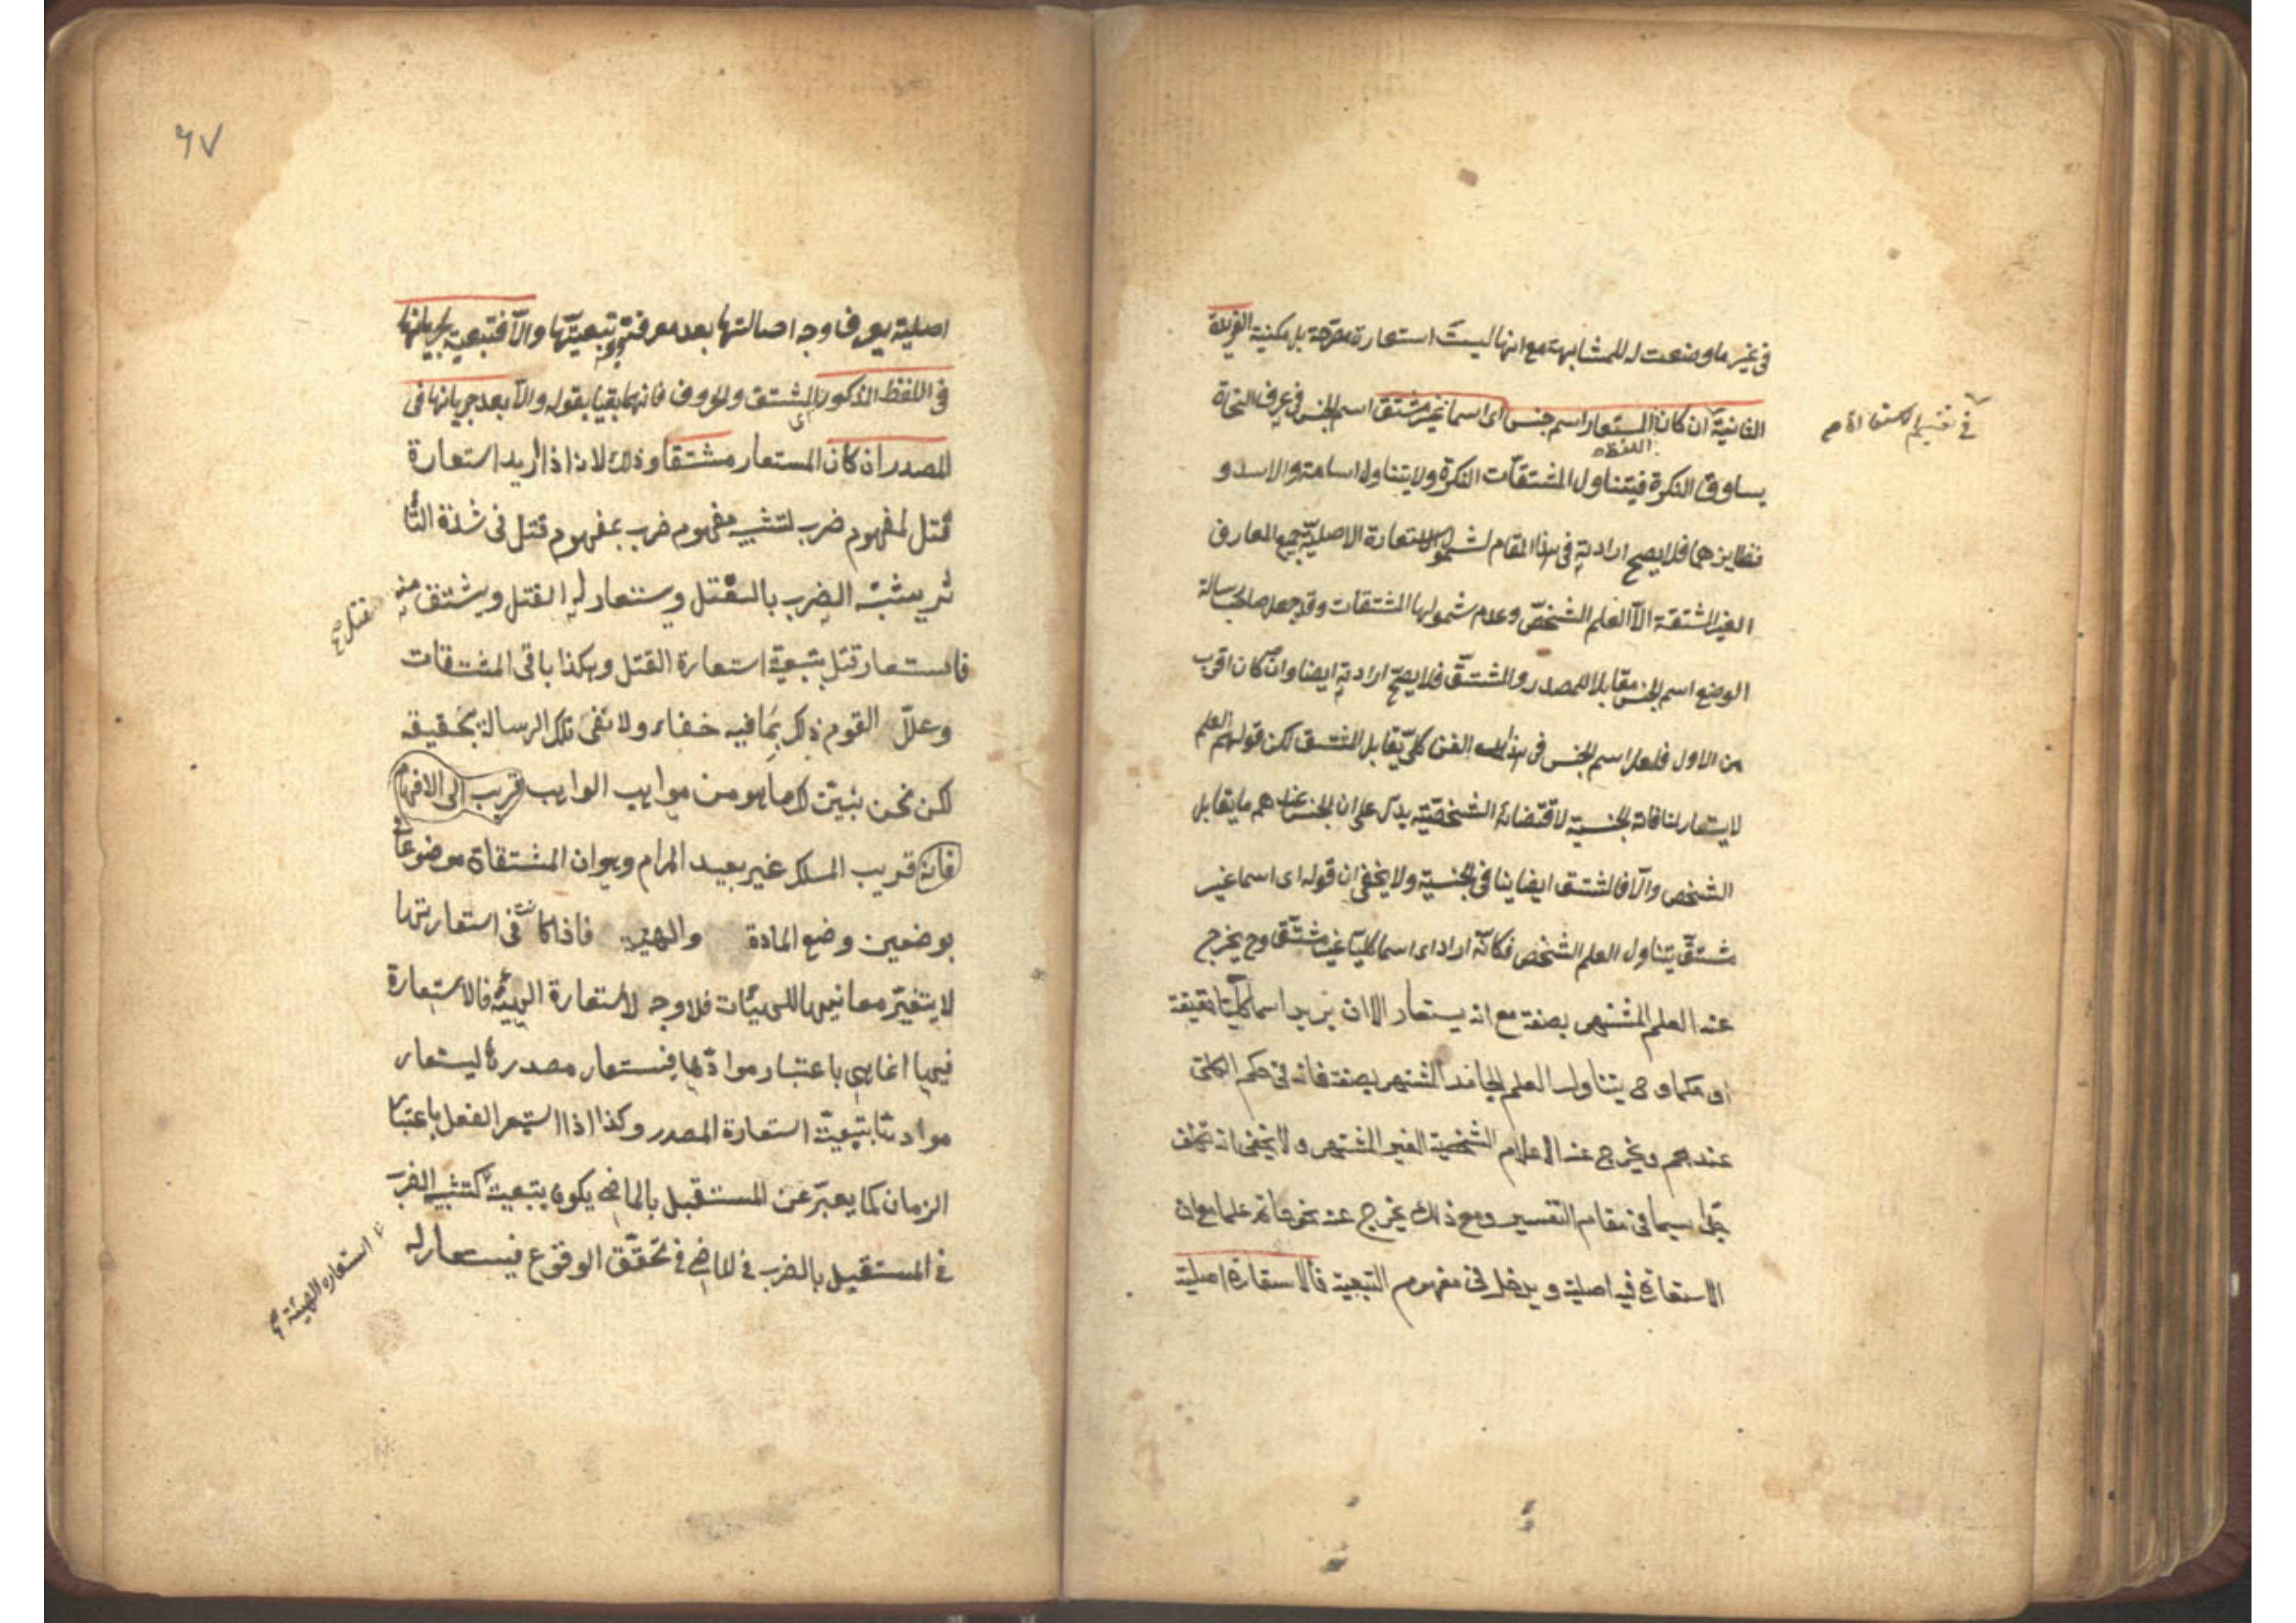 في غير ما وضعت له للمشابهة مع انها ليست استعارة مصرحة بل مكنية الفريدة
الثانية ان كان المستعار اسم جنس اى اسما غير مشتق اسم الجنس في عرف النحاة
في تقسيم الاستعارة
اللفظ
يساوق النكرة فيتناول المشتقات النكرة ولا يتناول اسامة والاسد و
نظايرهما فلا يصح ارادته في هذا المقام لشمول الاستعارة الاصلية جميع المعارف
الغير المشتقة الا العلم الشخصى وعدم شمولها المشتقات وقد جعل صاحب رسالة
الوضع اسم الجنس مقابلا للمصدر والمشتق فلا يصح ارادته ايضا وان كان اقرب
من الاول فلعل اسم الجنس في هذا الفن كلى يقابل المشتق لكن قولهم العلم
لا يستعار لمنافاته الجنسية لاقتضائه الشخصية يدل على ان الجنس عندهم ما يقابل
الشخص والا فالمشتق ايضا ينافى الجنسية ولا يخفى ان قوله اى اسما غير
مشتق يتناول العلم الشخص فكانه اراد اى اسما كليا غير مشتق وح يخرج
عنه العلم المشتهر بصفة مع انه يستعار الا ان يريد اسما كليا حقيقة
او حكما وح يتناول العلم الجامد المشتهر بصفة فانه في حكم الكلى
عندهم ويخرج عنه الاعلام الشخصية الغير المشتهر ولا يخفى انه تكلف
جدا سيما في مقام التفسير ومع ذلك يخرج عنه نحو حاتم علما مع ان
الاستعارة فيه اصلية ويدخل في مفهوم التبعية فالاستعارة اصلية
٦٧
اصلية يعرف وجه اصالتها بعد معرفة وجه تبعيتها والا فتبعية لجريانها
في اللفظ المذكور اى المشتق والحروف فانهما بقيا بقوله والا بعد جريانها في
المصدر ان كان المستعار مشتقا وذلك لانه اذا اريد استعارة
قتل لمفهوم ضرب لتشبيه مفهوم ضرب بمفهوم قتل فى شدة التأ
ثير يشبه الضرب بالقتل ويستعار له القتل ويشتق منه قتل صح
فاستعار قتل بتبعية استعارة القتل وهكذا باقى المشتقات
وعلل القوم ذلك بما فيه خفاء ولا تفى تلك الرسالة بتحقيقه
لكن نحن نبين لك ما هو من مواهب الواهب قريب الى الافهام
فانه قريب المسلك غير بعيد المرام وهو ان المشتقاة موضوعة
بوضعين وضع المادة والهيئة فاذا كانت في استعارتها
لا يتغير معانى الهيئات فلا وجه لاستعارة الهيئة فالاستعارة
فيها انما هى باعتبار موادها فيستعار مصدرها ليستعار
موادها بتبعية استعارة المصدر وكذا اذا استعير الفعل باعتبار
الزمان كما يعبر عن المستقبل بالماضي يكون بتبعية كتشبيه الضرب
في المستقبل بالضرب في الماضي في تحقق الوقوع فيستعار له
استعارة الهيئة صح